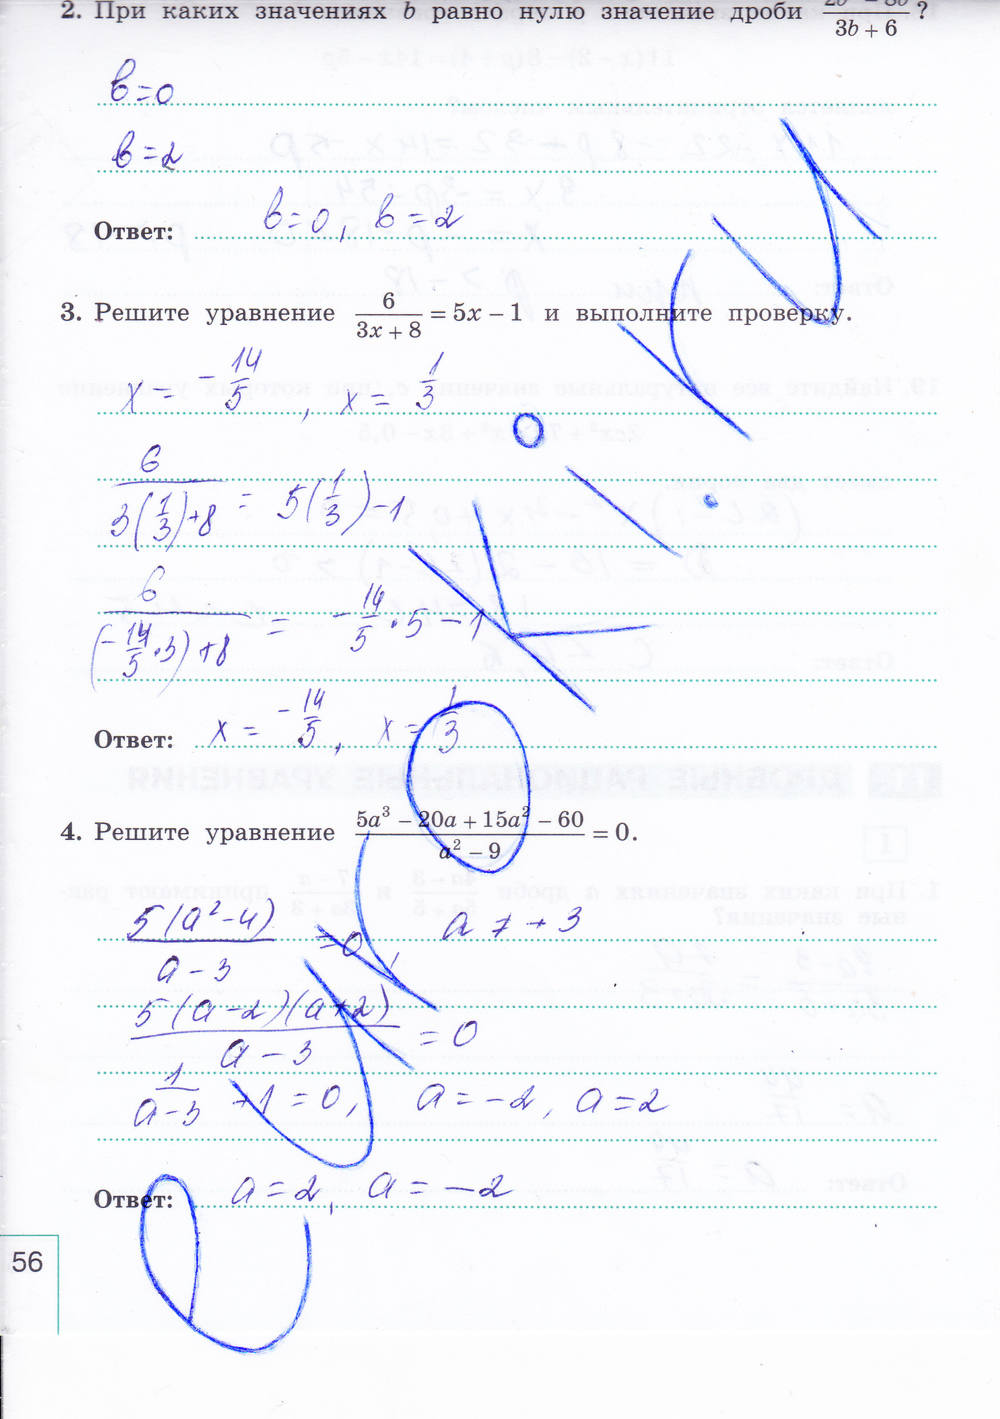 2. При каких значениях b равно нулю значение дроби /(3b + 6)?
в=0
в=2
Ответ: в=0, в=2
3. Решите уравнение 6/(3x + 8) = 5x − 1 и выполните проверку.
x = −14/5, x = 1/3
6/(3(1/3)+8) = 5(1/3)−1
6/((−14/5·3)+8) = −14/5·5−1
Ответ: x = −14/5, x = 1/3
4. Решите уравнение (5a³ − 20a + 15a² − 60)/(a² − 9) = 0.
5(a²−4)/(a−3) = 0, a ≠ +3
5(a−2)(a+2)/(a−3) = 0
1/(a−3) +1=0, a=−2, a=2
Ответ: a=2, a=−2
56